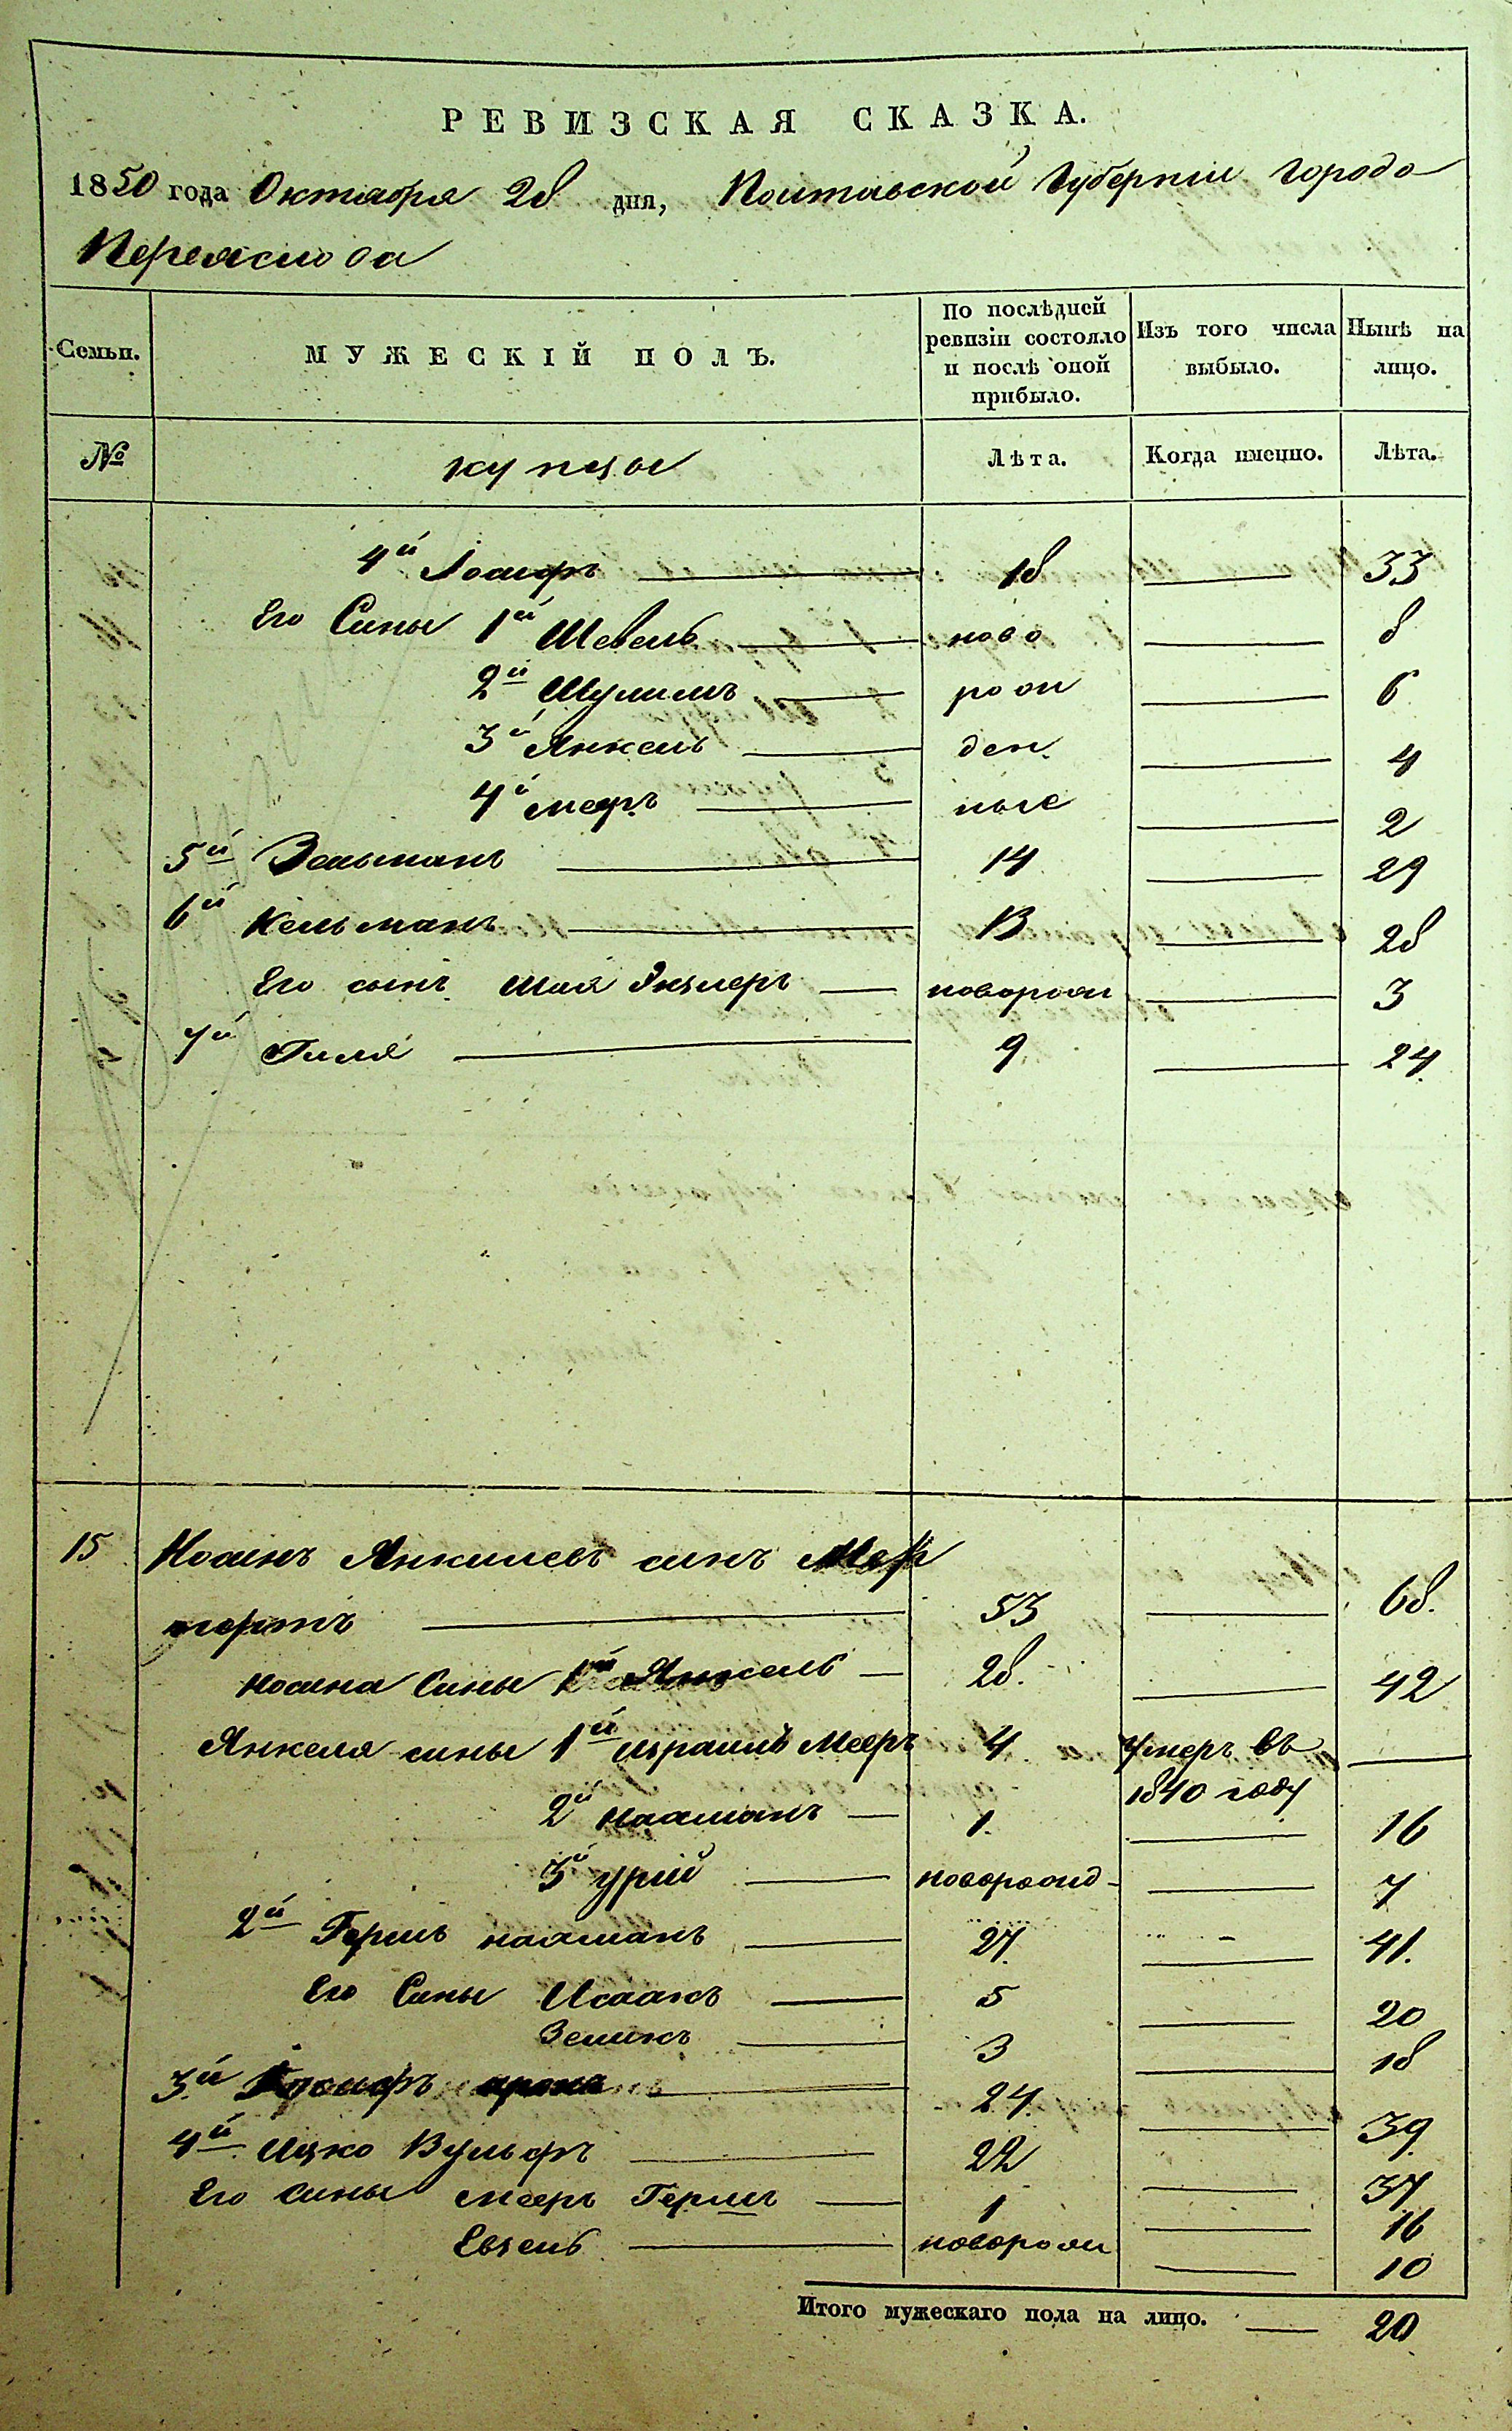 РЕВИЗСКАЯ СКАЗКА.
1850 года Октября 28 дня, Полтавской Губернии города
Переяслова
Семьи. МУЖЕСКІЙ ПОЛЪ. По послѣдней ревизіи состояло и послѣ оной прибыло. Изъ того числа выбыло. Нынѣ на лицо.
№ купцы Лѣта. Когда именно. Лѣта.
4й Іосифъ 18 33
Его Сины 1й Шевель ново 8
2й Шулимъ рож 6
3й Янкель ден 4
4й Мееръ ные 2
5й Зельманъ 14 29
6й Кельманъ 13 28
Его сынъ Шая новорож 3
7й Гиля 9 24
15 Носинъ Янкилевъ синъ
53 68.
Носина Сины 1й Янкель 28. 42
Янкеля сины 1й Израиль Мееръ 4 Умеръ въ
1840 году
2й Нахманъ 1. 16
3й Урій новорожд 7
2й Гершъ Нахманъ 27. 41.
Его Сины Исаакъ 5 20
Зеликъ 3 18
3й Іосифъ 24. 39.
4й Ицко Вульфъ 22 37
Его сины Мееръ Гершъ 1 16
Евзель новорож 10
Итого мужескаго пола на лицо. 20